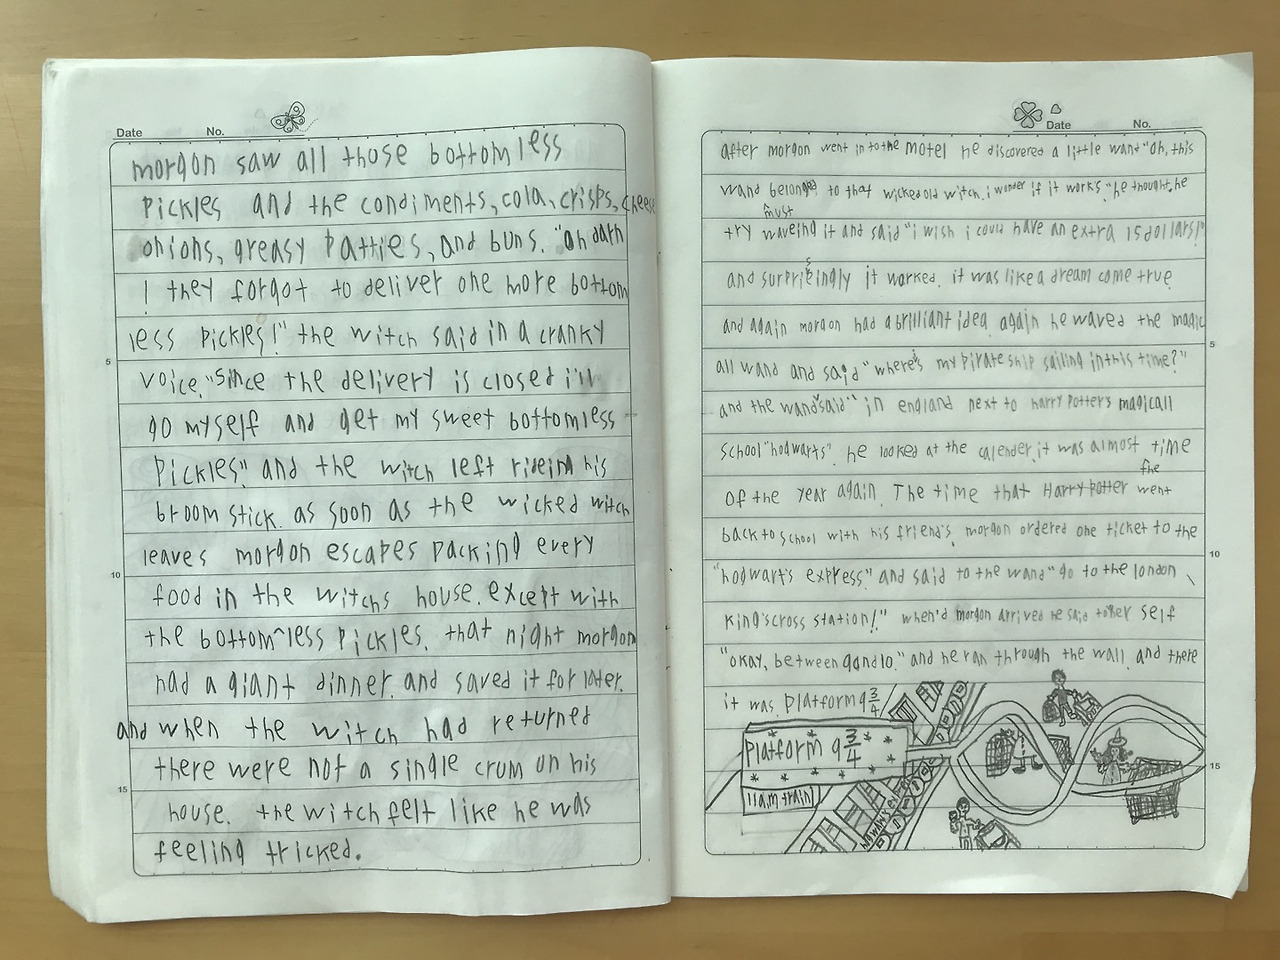 Date No.
morgon saw all those bottomless
pickles and the condiments, cola, crisps, cheese
onions, greasy patties, and buns. "oh darn
! they forgot to deliver one more bottom
less pickles!" the witch said in a cranky
voice. "since the delivery is closed i'll
go myself and get my sweet bottomless
pickles." and the witch left rideing his
broom stick. as soon as the wicked witch
leaves morgon escapes packing every
food in the witchs house. except with
the bottom^less pickles. that night morgon
had a giant dinner. and saved it for later.
and when the witch had returned
there were not a single crum on his
house. the witch felt like he was
feeling tricked.
5
10
15
Date No.
after morgon went in to the motel he discovered a little wand "oh, this
wand belonged to that wicked old witch. i wonder if it work's." he thought. he
must
try waveing it and said "i wish i could have an extra 15 dollars!"
and surpriseingly it worked. it was like a dream come true.
and again morgon had a brilliant idea. again he waved the magic
all wand and said "where's my pirate ship sailing in this time?"
and the wand said "in england next to harry potter's magicall
school "hodwarts". he looked at the calender. it was almost time
the
of the year again. The time that Harry potter went
back to school with his friend's. morgon ordered one ticket to the
"hogwart's express" and said to the wand "go to the london
king's cross station!" when'd morgon arrived he said to her self
"okay, between 9 and 10." and he ran through the wall. and there
it was. platform 9 3/4
platform 9 3/4
11a.m train
5
10
15